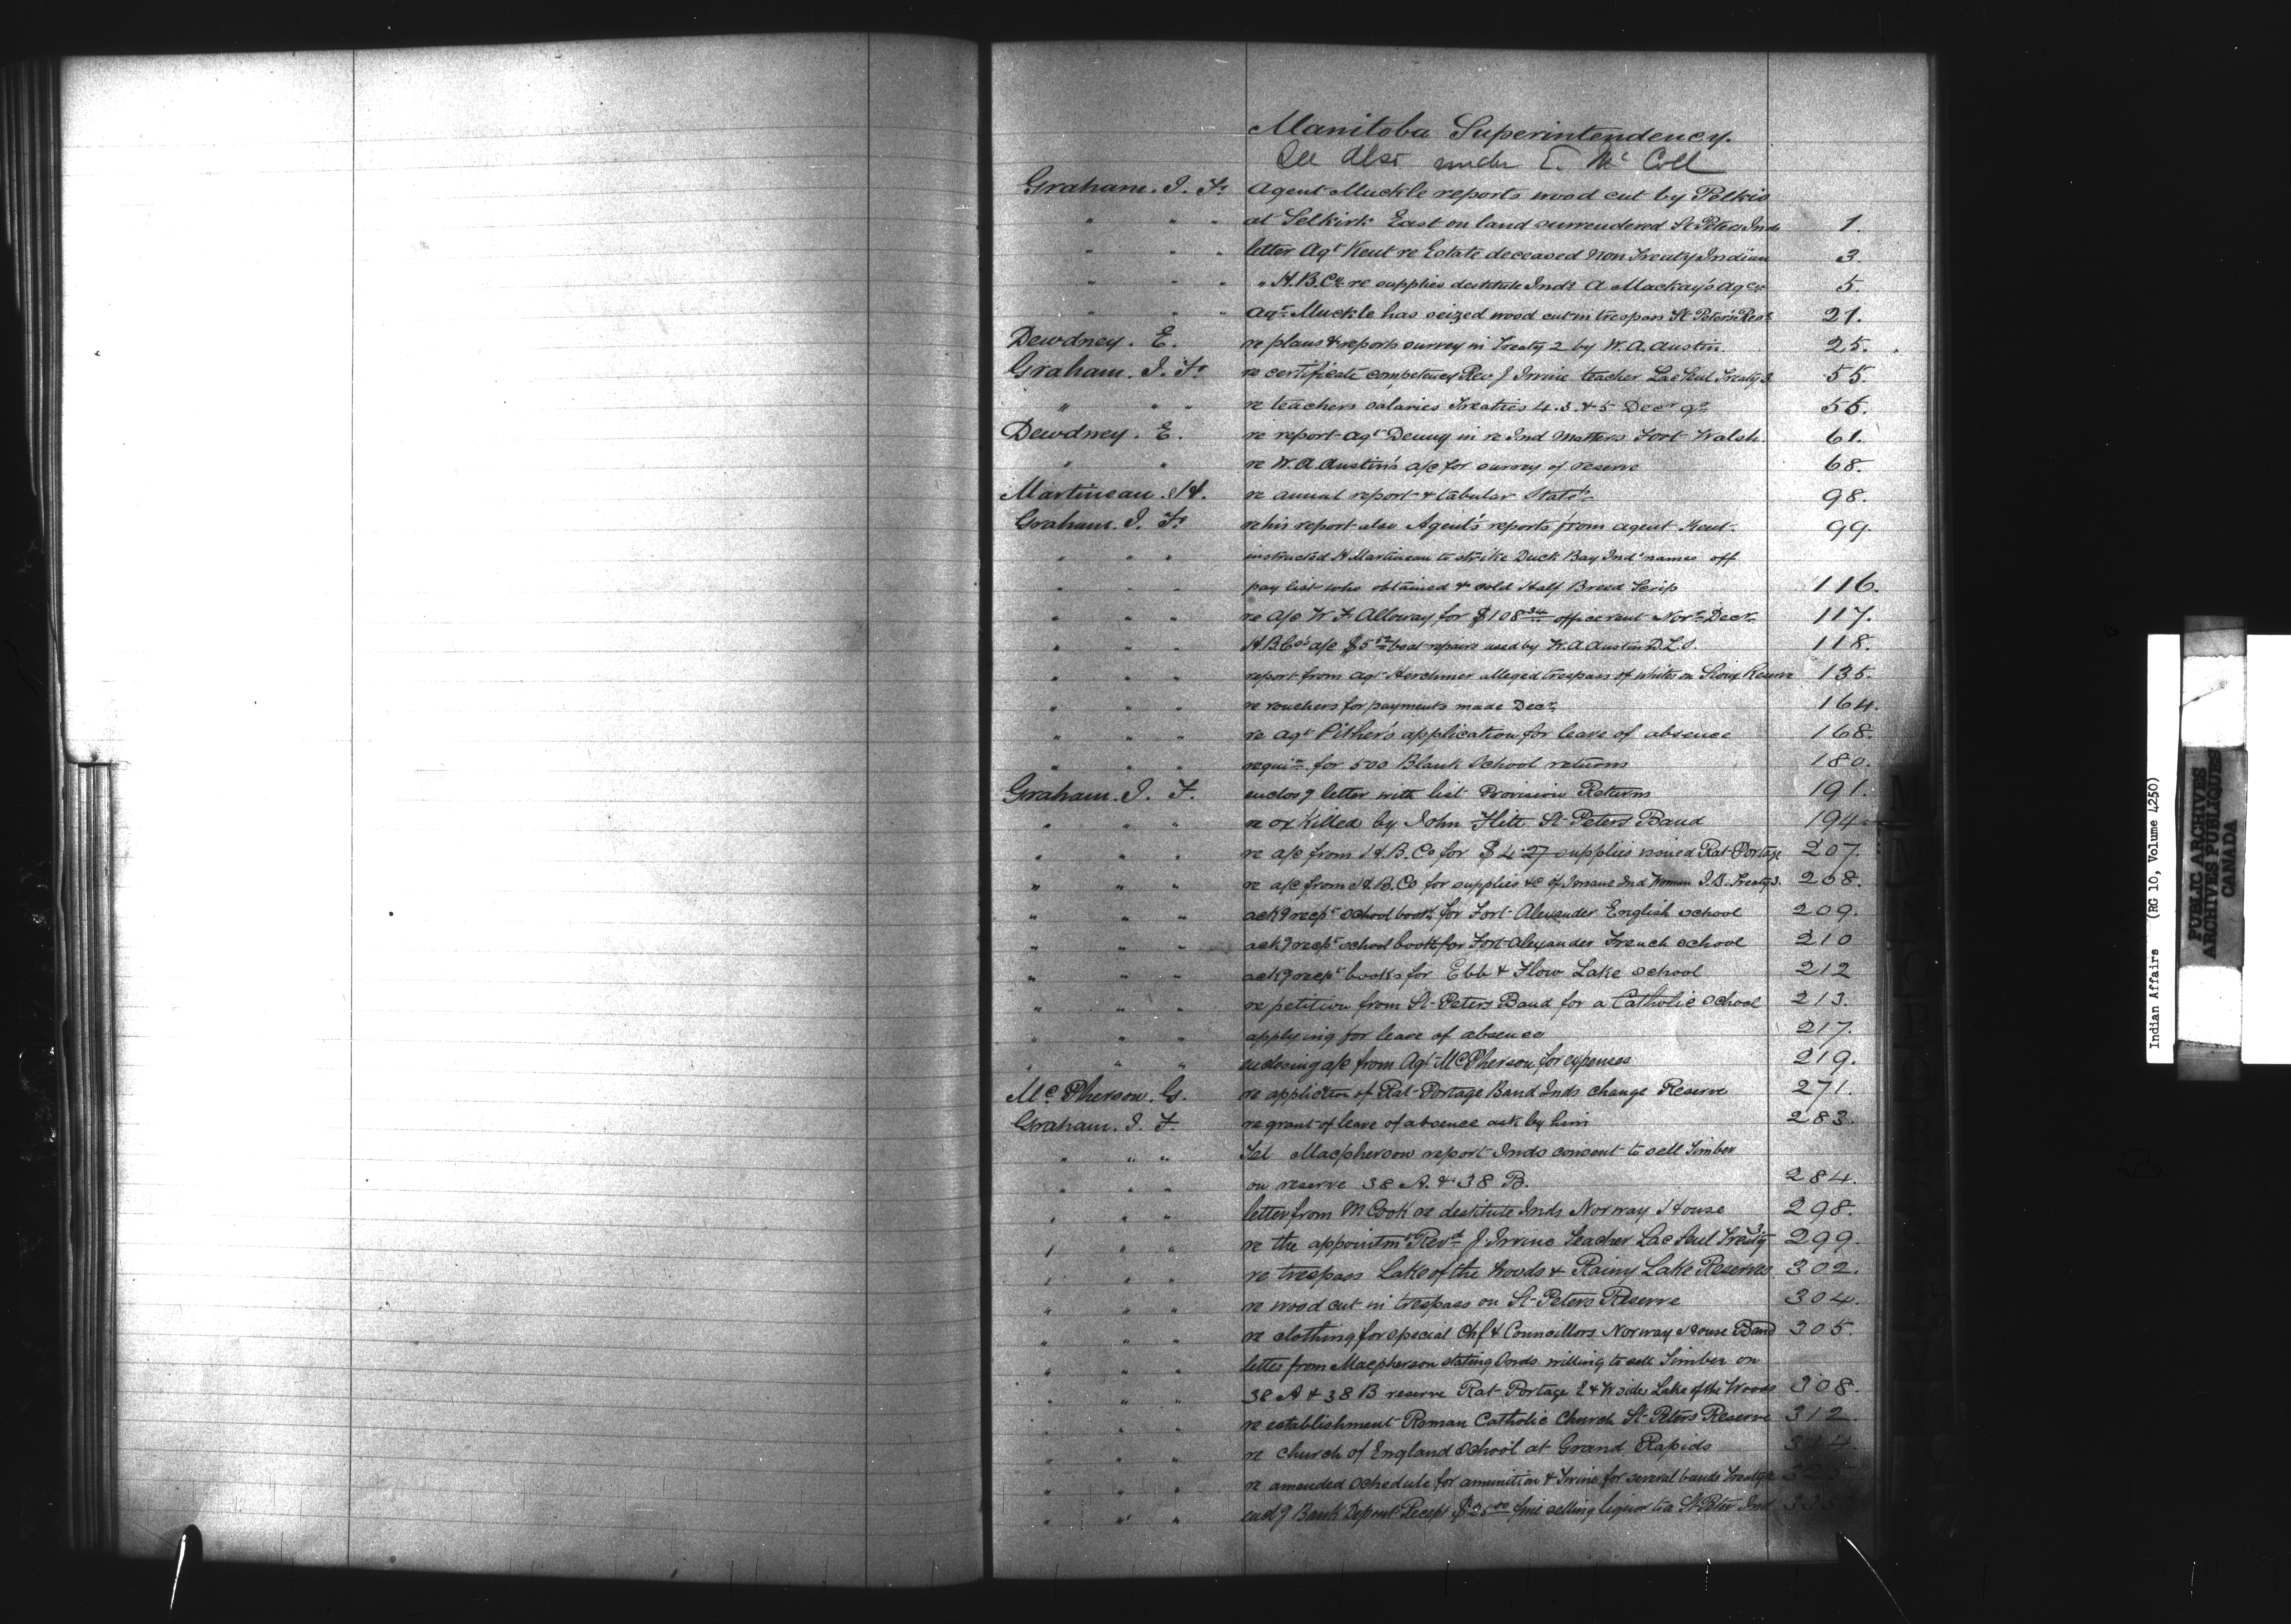 Manitoba Superintendency.
See also under E. McColl
Graham. J. F. Agent Muckle reports wood cut by Pelkie
" " " at Selkirk East on land surrendered St Peters Inds 1.
" " " letter Agt Kent re Estate deceased Non Treaty Indian 3.
" " " " H.B.Co re supplies destitute Inds A. Mackay's Agcy 5.
" " " Agt Muckle has seized wood cut in trespass St Peters Res. 21.
Dewdney. E. re plans & reports survey in Treaty 2 by W. A. Austin. 25.
Graham. J. F. re certificate competency Rev J Irvine teacher Lac Seul Treaty 3. 55.
" " " re teachers salaries Treaties 4. 3. & 5 Decr qr 55.
Dewdney. E. re report Agt Denny in re Ind Matters Fort Walsh. 61.
" " re W. A. Austin's a/c for survey of reserve 68.
Martineau. H. re annual report & tabular Statt 98.
Graham. J. F. re his report also Agent's reports from agent Kent. 99.
" " " instructed H Martineau to strike Duck Bay Inds names off
" " " pay list who obtained & sold Half Breed Scrip 116.
" " " re a/c W. F. Alloway for $108.34 office rent Novr Decr 117.
" " " H.B.Co's a/c $5 boat repairs used by W. A. Austin D.L.S. 118.
" " " report from Agt Herchmer alleged trespass of whites on Sioux Reserve 135.
" " " re vouchers for payments made Decr 164.
" " " re Agt Pither's application for leave of absence 168.
" " " requin for 500 Blank School returns 180.
Graham. J. F. enclosg letter with list Provision Returns 191.
" " " re ox Killed by John Flitt St Peters Band 194
" " " re a/c from H. B. Co for $4.27 supplies issued Rat Portage 207.
" " " re a/c from H. B. Co for supplies &c of Insane Ind Woman Treaty 3. 208.
" " " ackg recpt school books for Fort Alexander English school 209.
" " " ackg recpt school books for Fort Alexander French school 210
" " " ackg recpt books for Ebb & Flow Lake school 212
" " " re petition from St Peters Band for a Catholic school 213.
" " " applying for leave of absence 217.
" " " enclosing a/c from Agt McPherson for expenses 219.
McPherson. G. re appliction of Rat Portage Band Inds change Reserve 271.
Graham. J. F. re grant of leave of absence ask by him 283.
" " " Tel Macpherson report Inds consent to sell Timber
" " " on reserve 38 A. & 38 B. 284.
" " " letter from M Cook re destitute Inds Norway House 298.
" " " re the appointmt Revd J. Irvine Teacher Lac Seul Treaty 3 299.
" " " re trespass Lake of the Woods & Rainy Lake Reserves 302.
" " " re wood cut in trespass on St Peters Reserve 304.
" " " re clothing for special Chf & Councillors Norway House Band 305.
" " " letter from Macpherson stating Inds willing to sell Timber on
" " " 38 A & 38 B reserve Rat Portage E & W side Lake of the Woods 308.
" " " re establishment Roman Catholic Church St Peters Reserve 312.
" " " re Church of England School at Grand Rapids 314.
" " " re amended schedule for ammunition & twine for several bands
" " " enclg Bank Deposit Recept fine selling liquor to a St Peter Ind
Indian Affairs (RG 10, Volume 4250)
PUBLIC ARCHIVES
ARCHIVES PUBLIQUES
CANADA